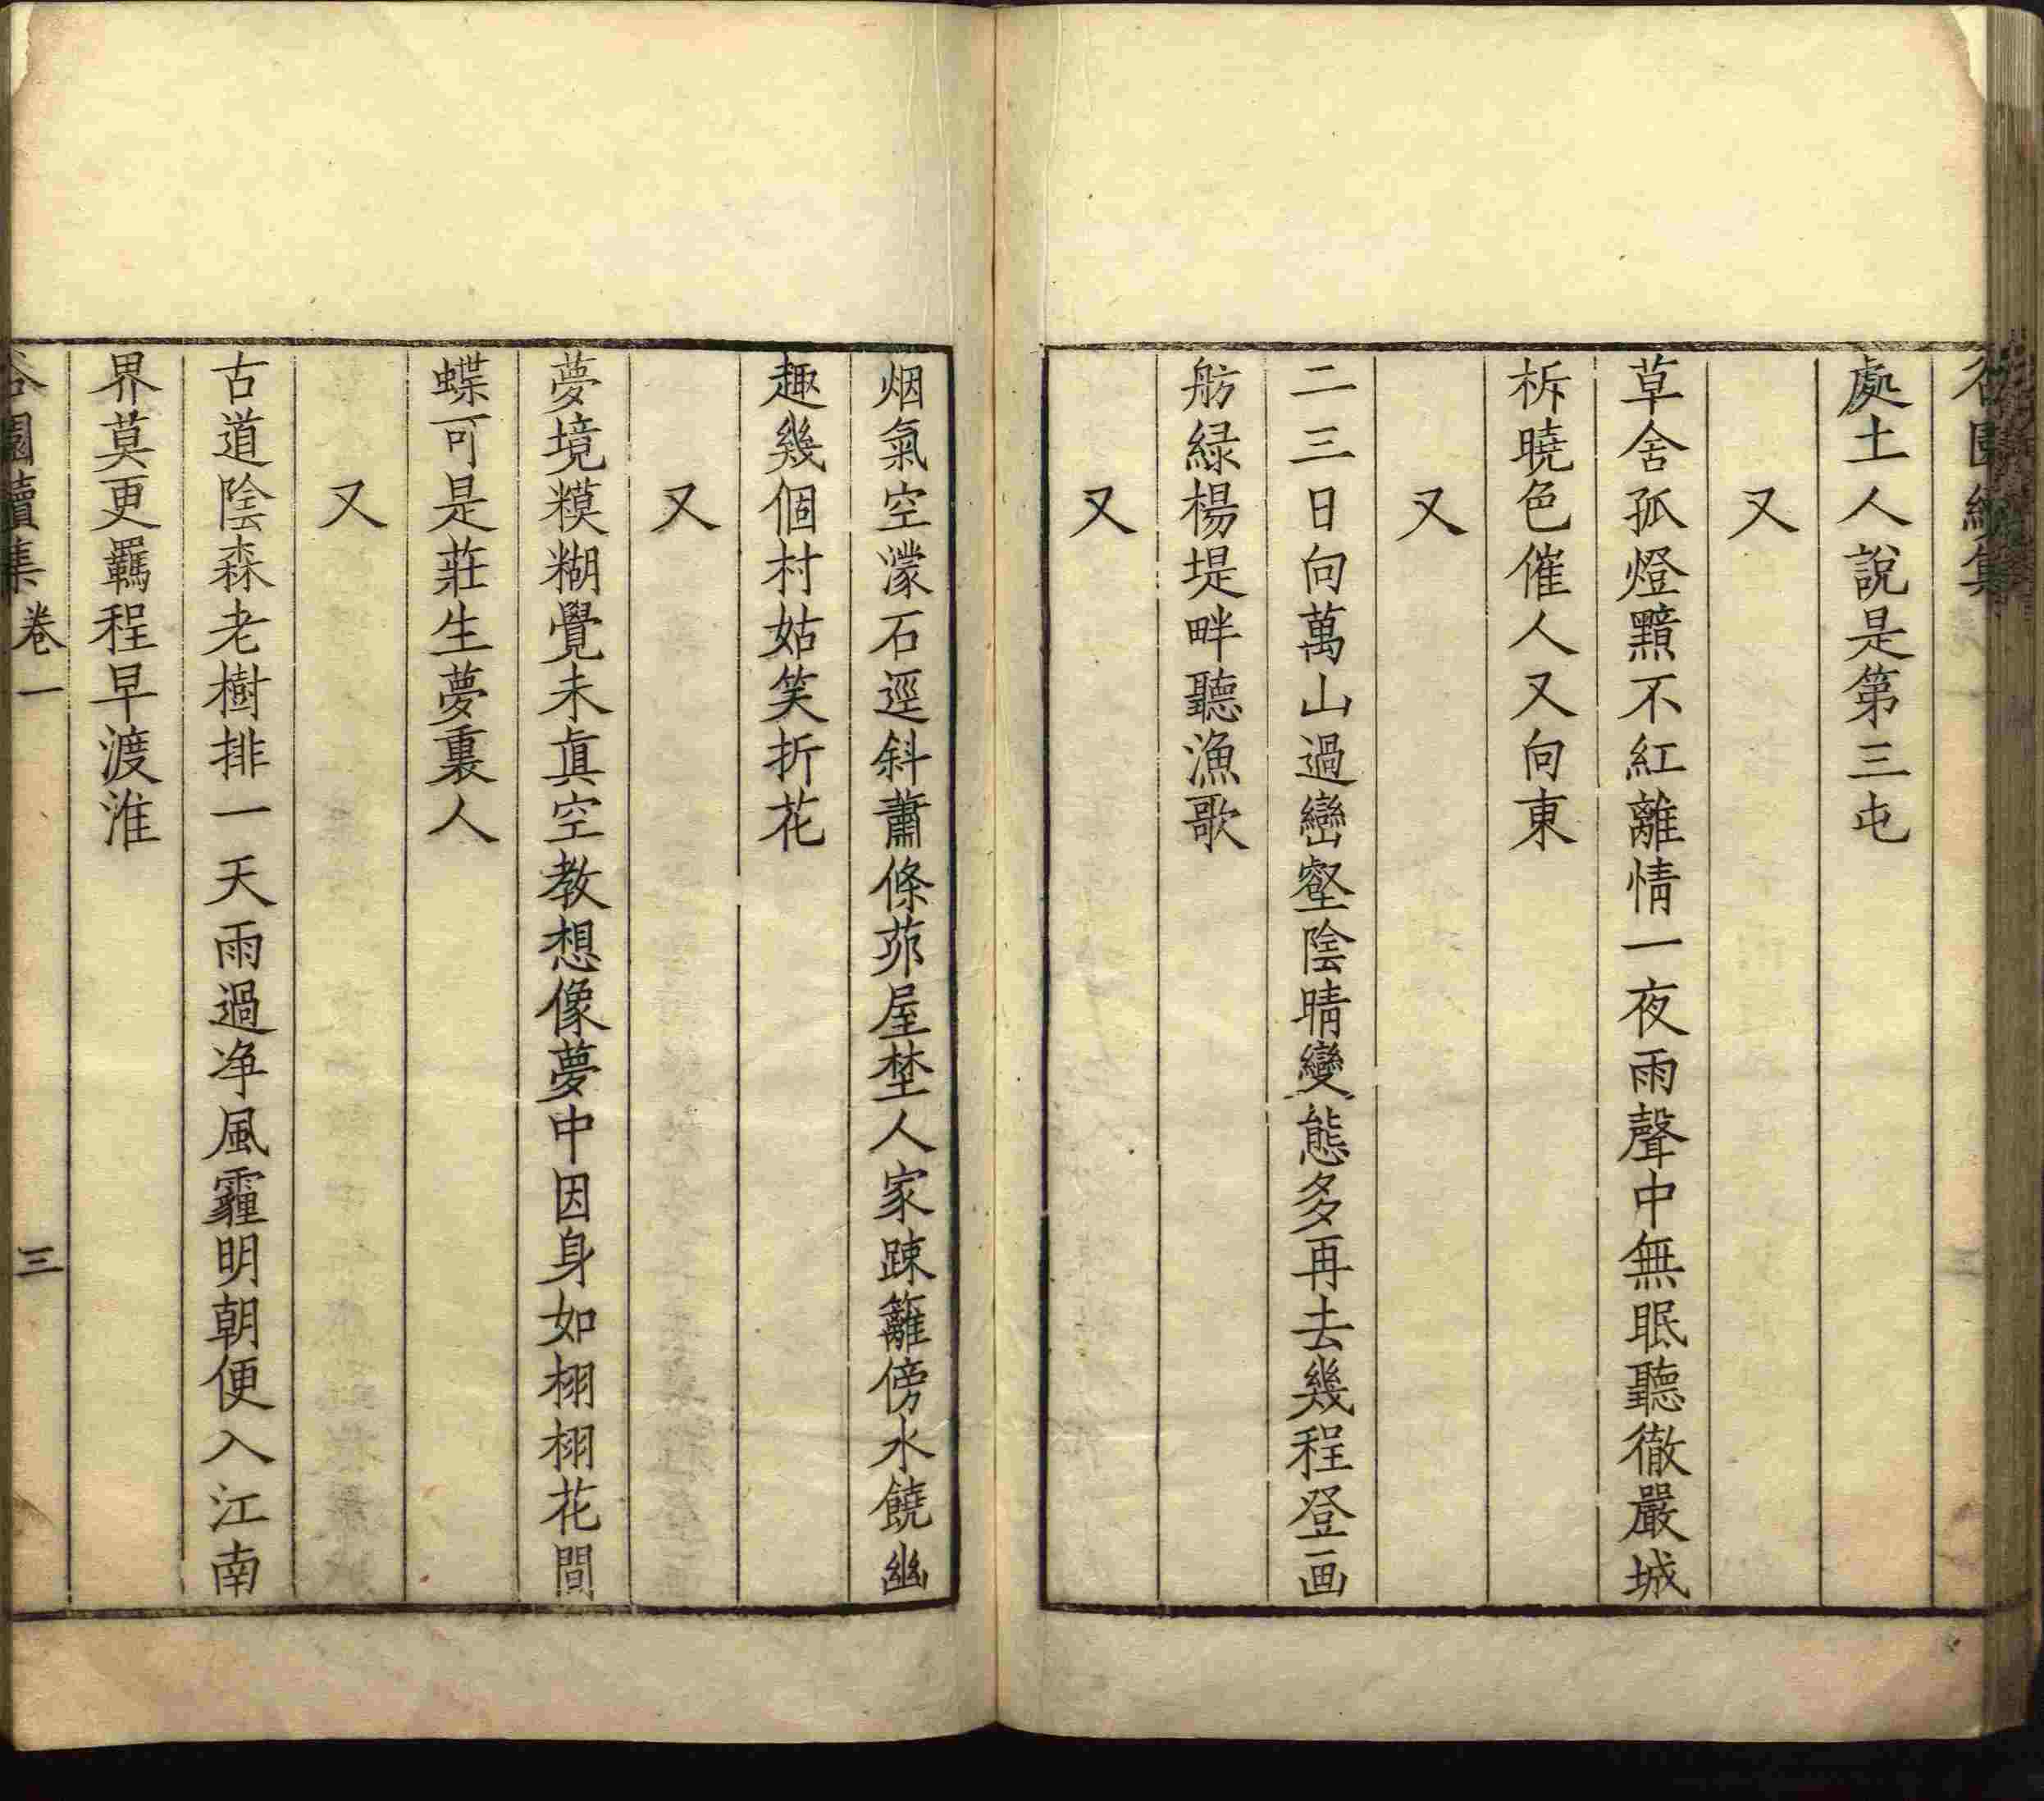 處土人說是第三屯
又
草舍孤燈黯不紅離情一夜雨聲中無眠聽徹嚴城
柝曉色催人又向東
又
二三日向萬山過巒壑陰晴變態多再去幾程登画
舫緑楊堤畔聽漁歌
又
烟氣空濛石逕斜蕭條茆屋埜人家踈籬傍水饒幽
趣幾個村姑笑折花
又
夢境糢糊覺未眞空教想像夢中因身如栩栩花間
蝶可是莊生夢裏人
又
古道陰森老樹排一天雨過净風霾明朝便入江南
界莫更羈程早渡淮
園續集 卷一 三